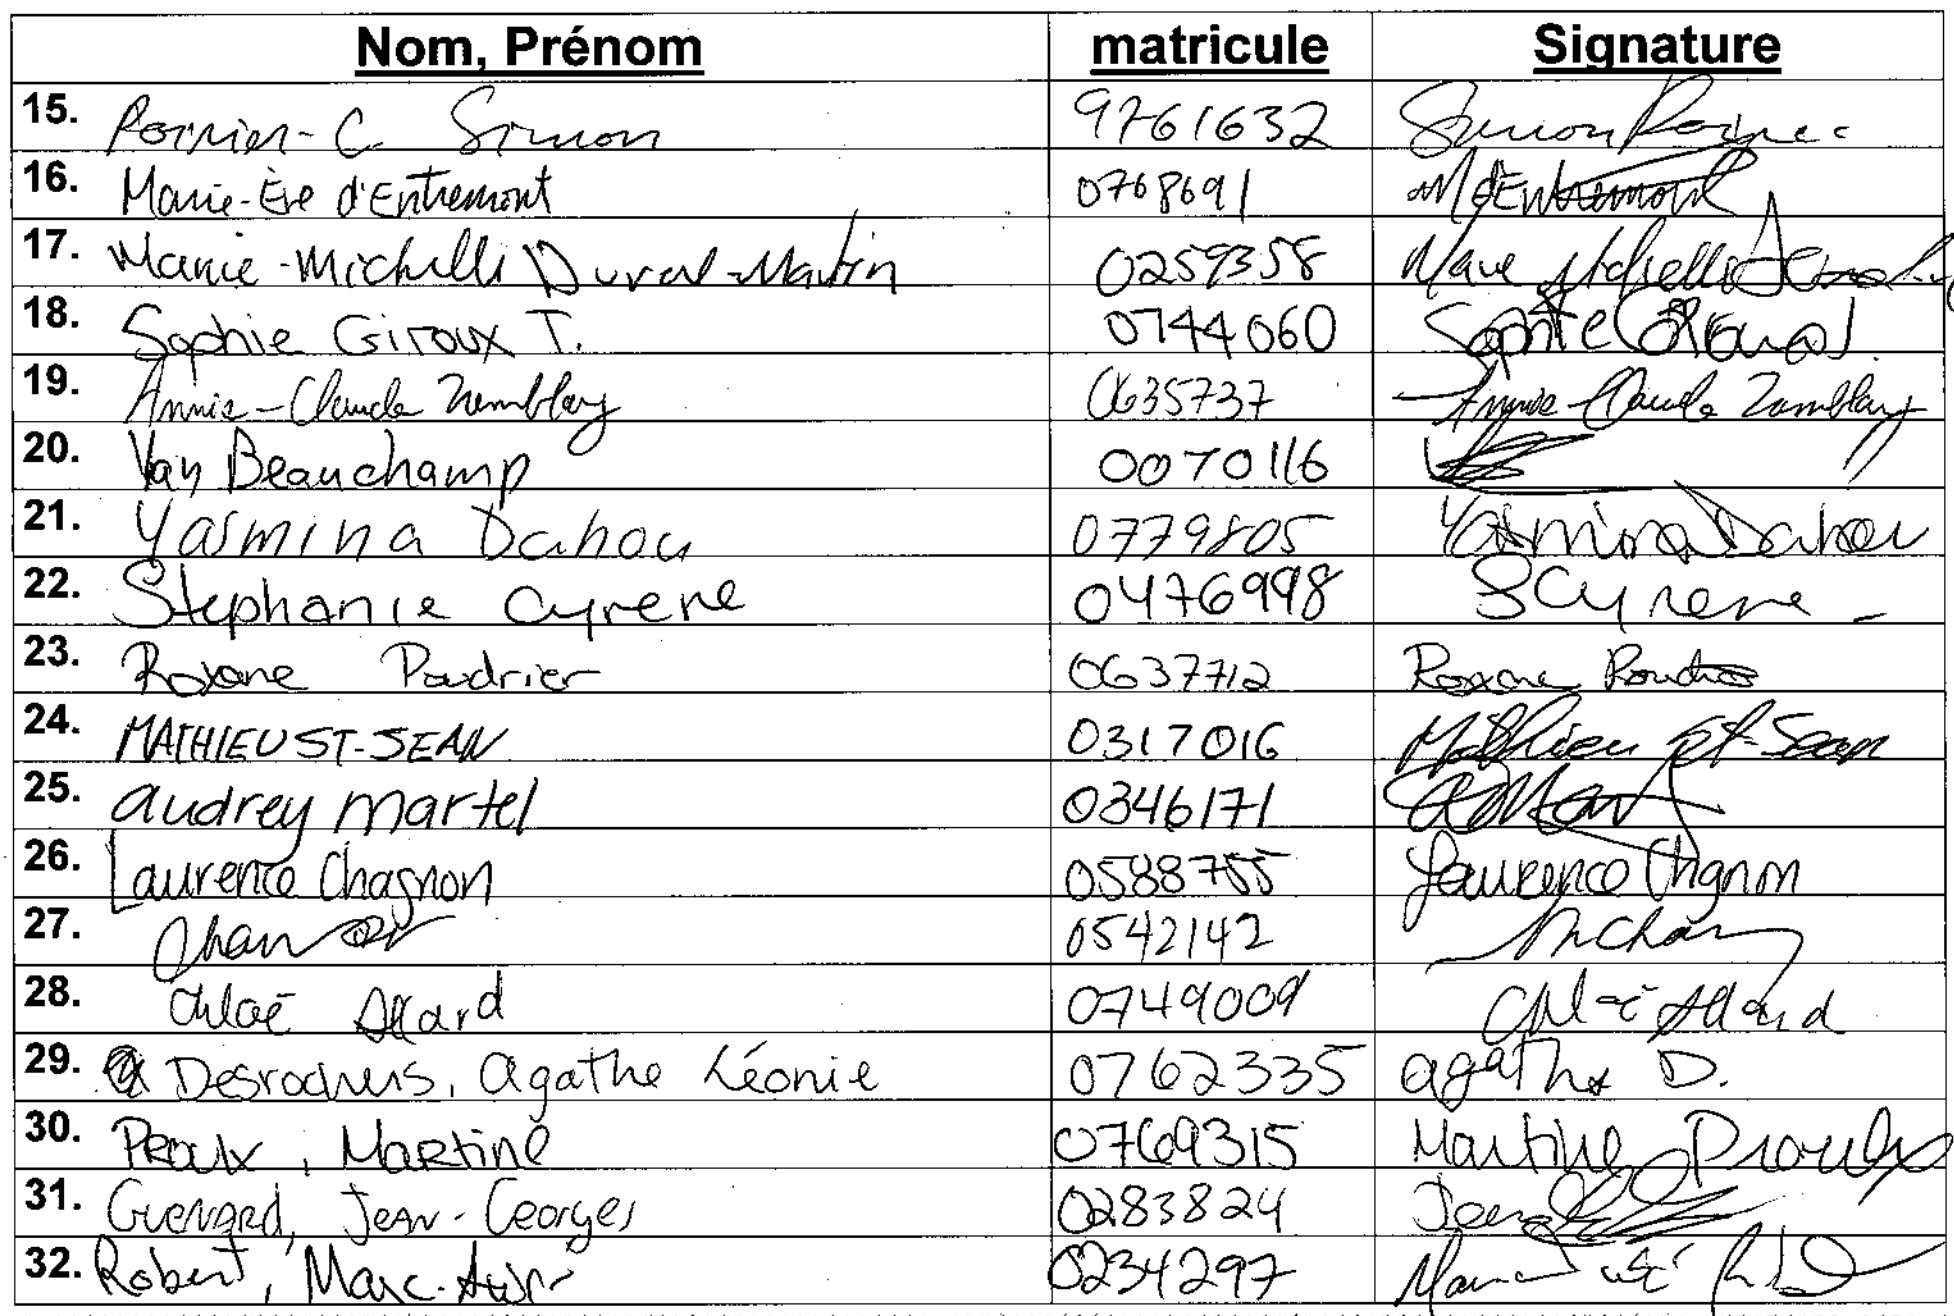 Nom, Prénom matricule Signature
15. Poirier-C. Simon 9761632 Simon Poirier
16. Marie-Ève d'Entremont 0768691 M d'Entremont
17. Marie-Michelle Duval-Martin 0259358 Marie Michelle
18. Sophie Giroux T. 0744060 Sophie
19. Annie-Claude Tremblay 0635737 Annie-Claude Tremblay
20. Van Beauchamp 0070116
21. Yasmina Dahou 0779805 Yasmina Dahou
22. Stephanie Cyrene 0476998 SCyrene
23. Roxane Poudrier 0637712 Roxane
24. MATHIEU ST-JEAN 0317016 Mathieu St-Jean
25. Audrey Martel 0346171
26. Laurence Chagnon 0588755 Laurence Chagnon
27. 0542142
28. Chloé Allard 0749009 Chloé Allard
29. Desrochers, Agathe Léonie 0762335 Agathe D.
30. Proulx, Martine 0769315 Martine Proulx
31. Guenard, Jean-Georges 0283824 Jean
32. Robert, Marc-André 0234297